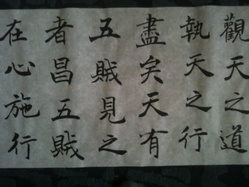 觀天之道
執天之行
盡矣天有
五賊見之
者昌五賊
在心施行